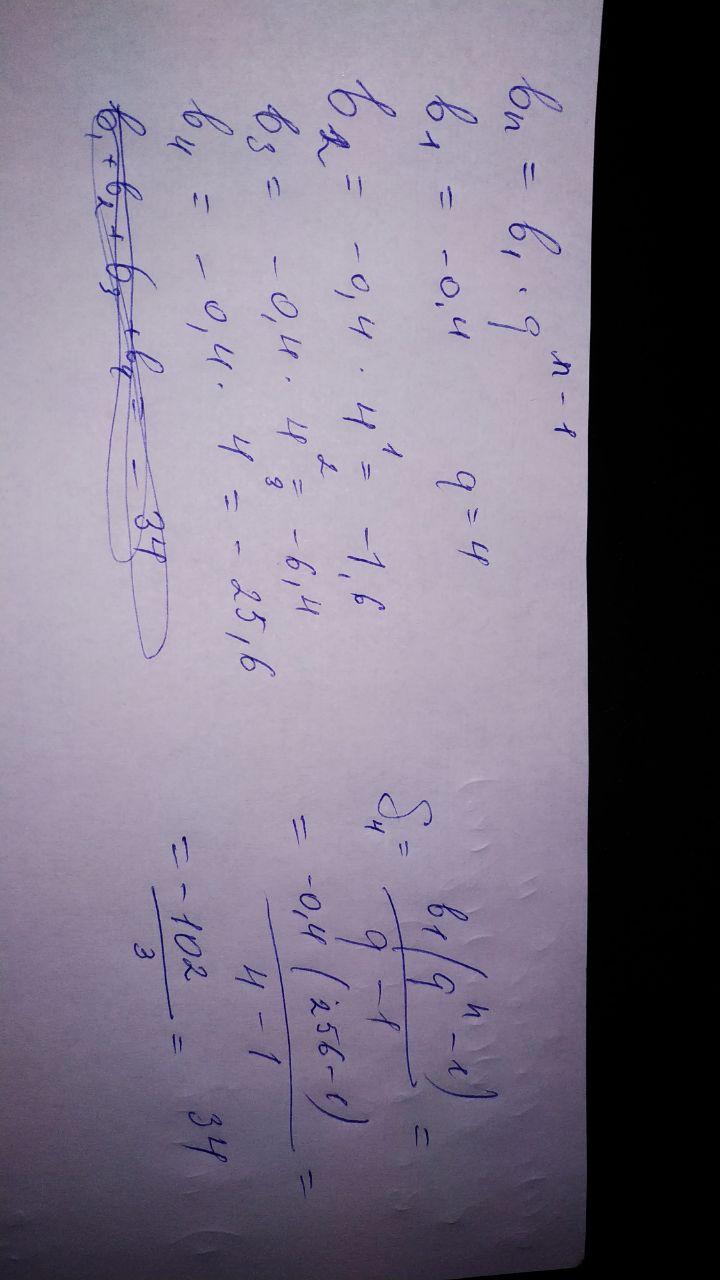 bn = b₁ · q^(n-1)
b₁ = -0,4   q = 4
b₂ = -0,4 · 4¹ = -1,6
b₃ = -0,4 · 4² = -6,4
b₄ = -0,4 · 4³ = -25,6
b₁ + b₂ + b₃ + b₄ = -34
S₄ = b₁(qⁿ - 1) / (q - 1) =
= -0,4(256-1) / (4 - 1) =
= -102 / 3 = 34